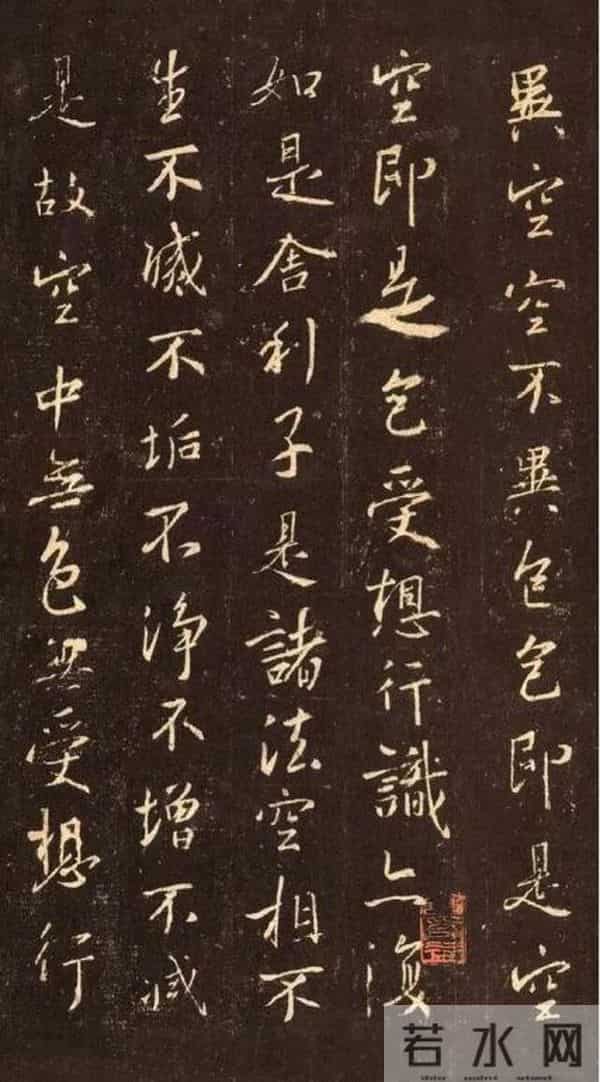 異空空不異色色即是空
空即是色受想行識亦復
如是舍利子是諸法空相不
生不滅不垢不淨不增不減
是故空中無色無受想行
若水网